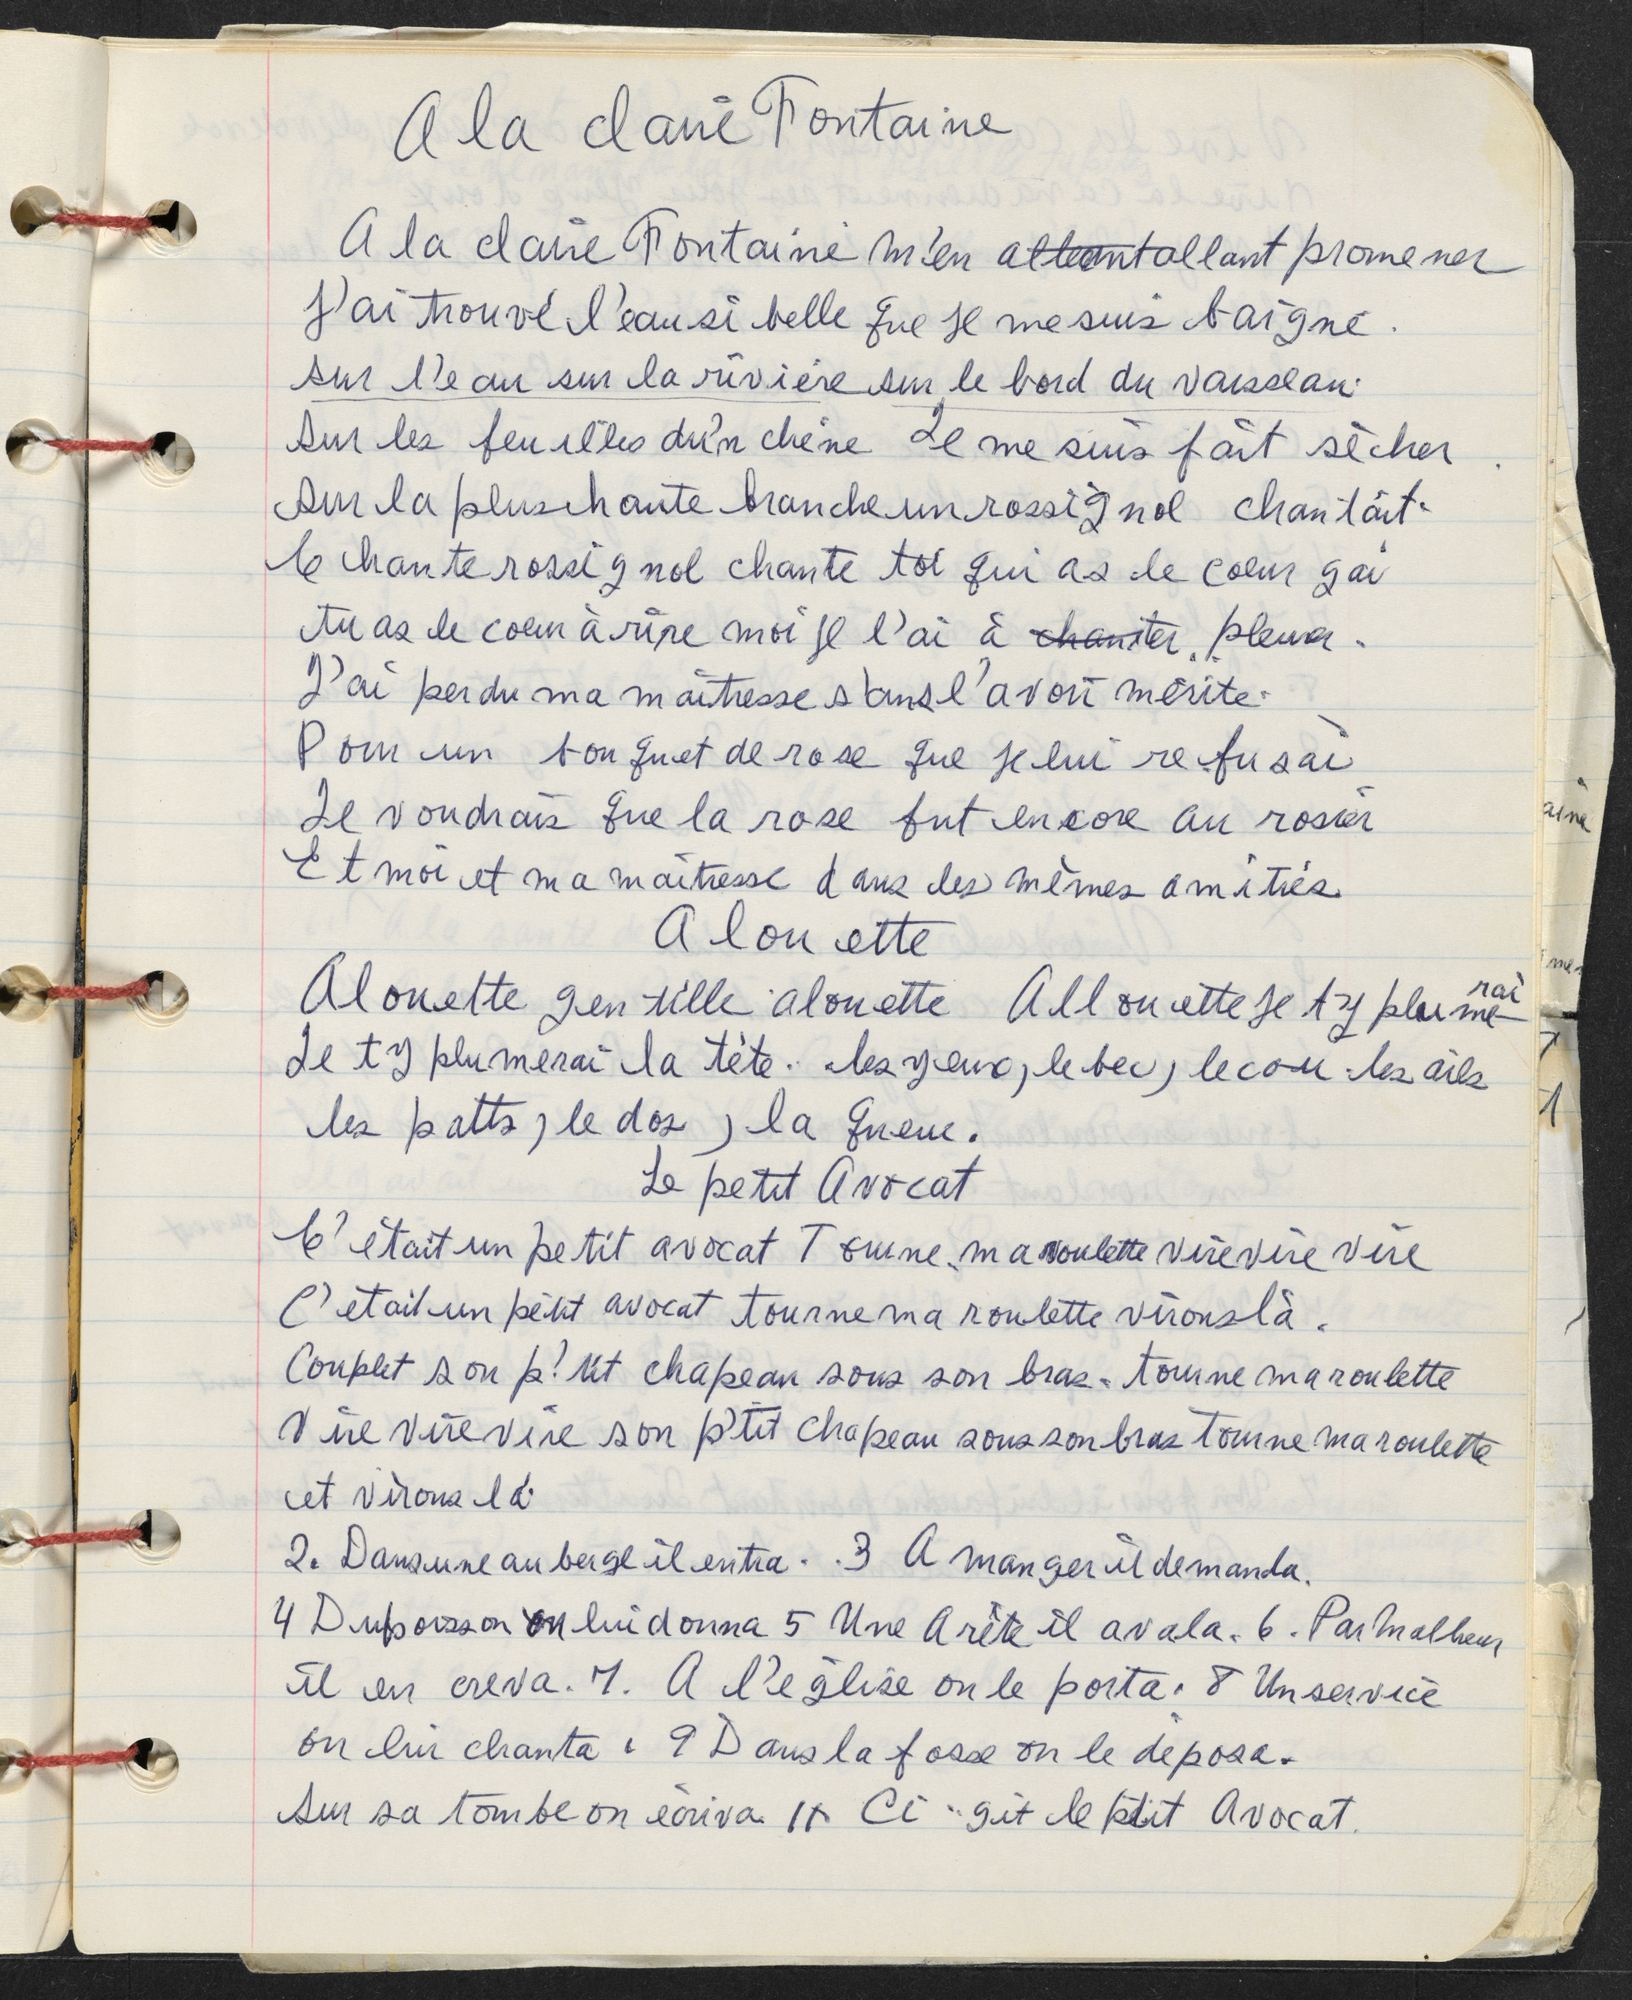 A la claire Fontaine
A la claire Fontaine m'en allant allant promener
J'ai trouvé l'eau si belle que je me suis baigné.
sur l'eau sur la rivière sur le bord du vaisseau.
Sur les feuilles d'un chêne Je me suis fait sècher.
Sur la plus haute branche un rossignol chantait.
Chante rossignol chante toi qui as le coeur gai
tu as le coeur à rire moi je l'ai à chanter. pleurer.
J'ai perdu ma maîtresse sans l'avoir mérité.
Pour un bouquet de rose que je lui refusai
Je voudrais que la rose fut encore au rosier
Et moi et ma maîtresse dans les mêmes amitiés.
Alouette
Alouette gentille alouette Allouette je ty plumerai
Je ty plumerai la tête. les yeux, le bec, le cou. les ailes
les patts, le dos, la queue.
Le petit Avocat
C'était un petit avocat Tourne ma roulette vire vire vire
C'était un petit avocat tourne ma roulette virons là.
Couplet son p'tit chapeau sous son bras. tourne ma roulette
Vire vire vire son p'tit chapeau sous son bras tourne ma roulette
et virons là.
2. Dans une auberge il entra. . 3 A manger il demanda.
4 Du poisson on lui donna 5 Une Arête il avala. 6. Par malheur
il en creva. 7. A l'église on le porta. 8 Un service
on lui chanta. 9 Dans la fosse on le déposa.
Sur sa tombe on écriva. 11 Ci-git le ptit Avocat.